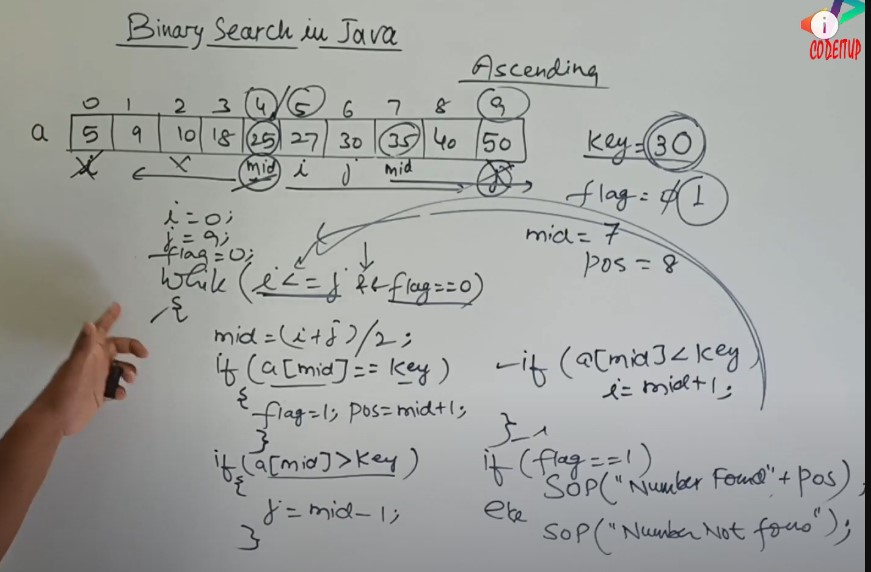 Binary Search in Java
i
CODEITUP
Ascending
0 1 2 3 4/5 6 7 8 9
a 5 9 10 18 25 27 30 35 40 50
i x mid i j mid j
key=30
flag=0 1
mid=7
pos=8
i=0;
j=9;
flag=0;
While (i<=j && flag==0)
{
mid=(i+j)/2;
if (a[mid]==key)
{
flag=1; pos=mid+1;
}
if (a[mid]>key)
{
j=mid-1;
}
if (a[mid]<key
i=mid+1;
}
if (flag==1)
SOP("Number Found"+pos);
else
SOP("Number Not foun");